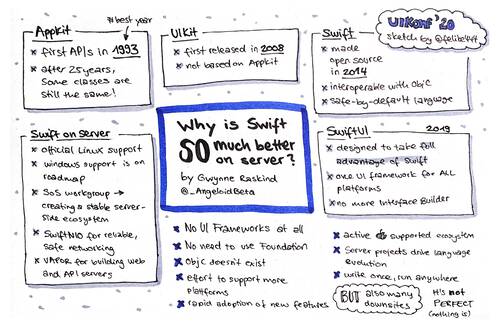 Appkit
# best year
× first APIs in 1993
× after 25 years,
Some classes are
still the same!
UIKit
× first released in 2008
× not based on Appkit
Swift
× made
open source
in 2014
× interoperable with ObjC
× safe-by-default language
UIKonf '20
sketch by @felibe444
Swift on Server
× official Linux support
× windows support is on
roadmap
× SSS workgroup →
creating a stable server-
side ecosystem
× SwiftNIO for reliable,
safe networking
× VAPOR for building web
and API servers
Why is Swift
SO much better
on server?
by Gwynne Raskind
@_AngeloidBeta
SwiftUI 2019
× designed to take full
advantage of Swift
× one UI framework for ALL
platforms
× no more Interface Builder
× No UI Frameworks at all
× No need to use Foundation
× ObjC doesn't exist
× effort to support more
platforms
× rapid adoption of new features
× active & supported ecosystem
× Server projects drive language
evolution
× write once, run anywhere
BUT also many
downsites
It's not
PERFECT
(nothing is)